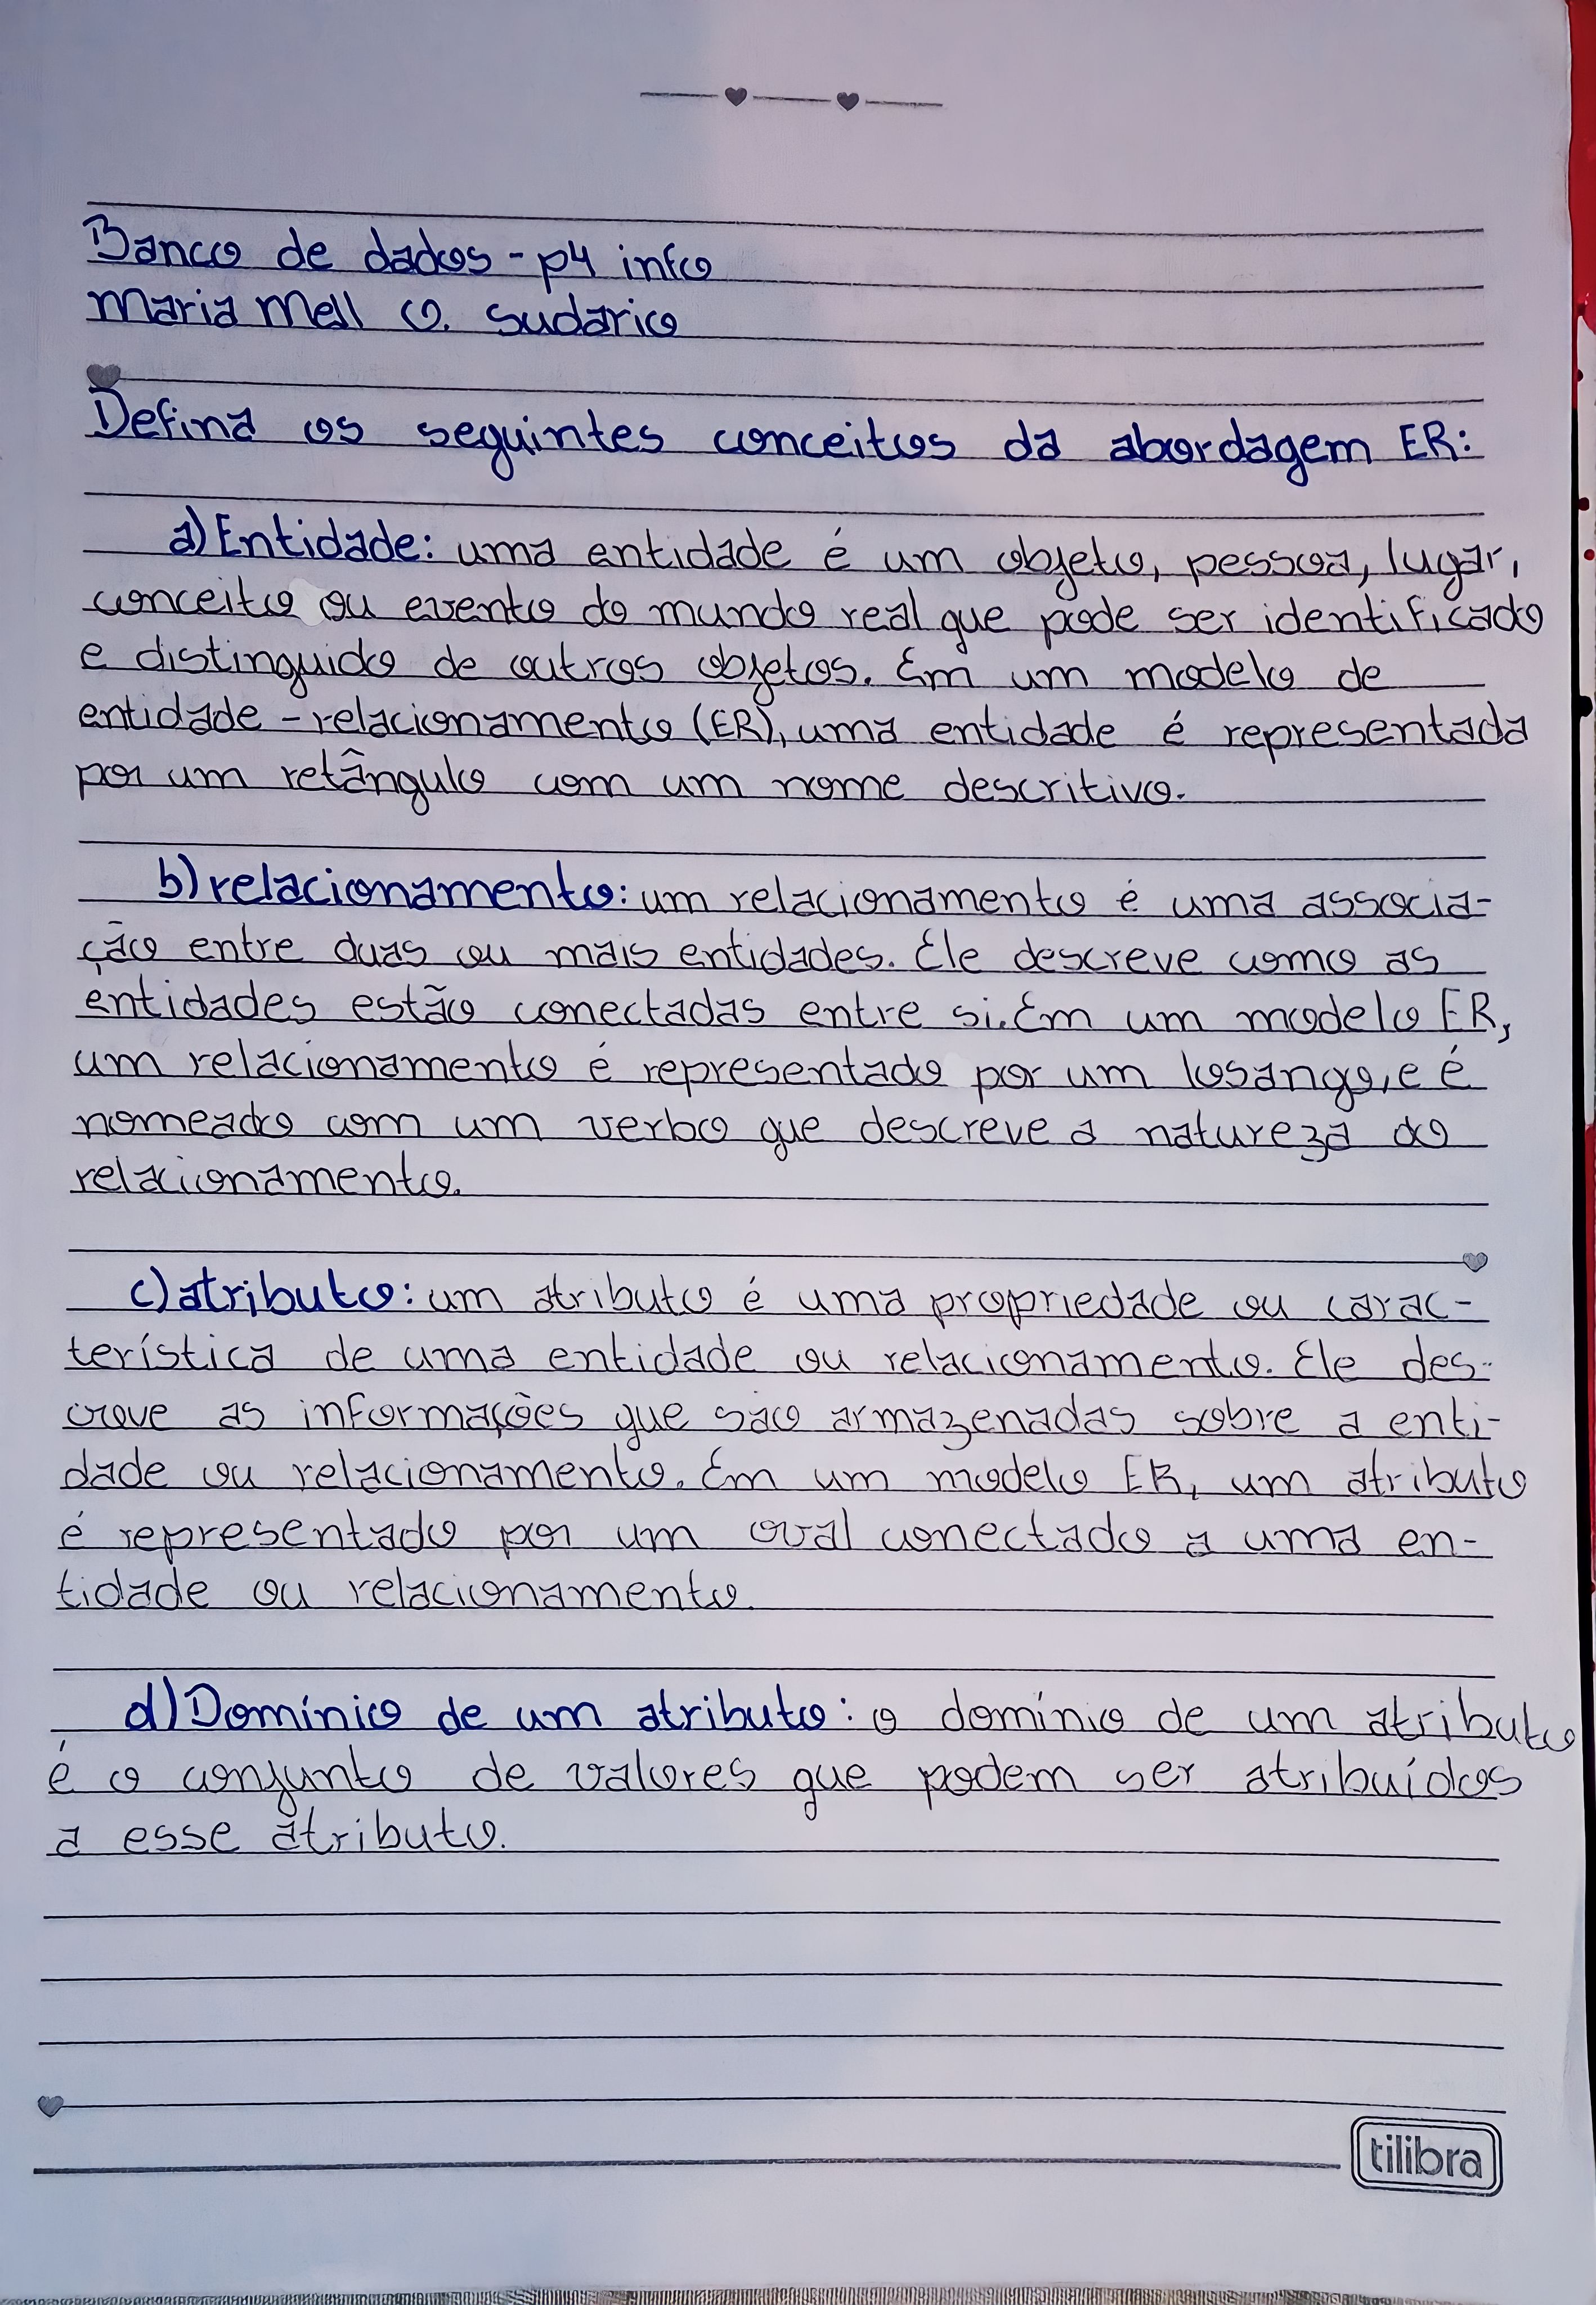 Banco de dados - p4 info
Maria Mell O. Sudário
Defina os seguintes conceitos da abordagem ER:
a) Entidade: uma entidade é um objeto, pessoa, lugar,
conceito ou evento do mundo real que pode ser identificado
e distinguido de outros objetos. Em um modelo de
entidade - relacionamento (ER), uma entidade é representada
por um retângulo com um nome descritivo.
b) relacionamento: um relacionamento é uma associa-
ção entre duas ou mais entidades. Ele descreve como as
entidades estão conectadas entre si. Em um modelo ER,
um relacionamento é representado por um losango, e é
nomeado com um verbo que descreve a natureza do
relacionamento.
c) atributo: um atributo é uma propriedade ou carac-
terística de uma entidade ou relacionamento. Ele des-
creve as informações que são armazenadas sobre a enti-
dade ou relacionamento. Em um modelo ER, um atributo
é representado por um oval conectado a uma en-
tidade ou relacionamento.
d) Domínio de um atributo: o domínio de um atributo
é o conjunto de valores que podem ser atribuídos
a esse atributo.
tilibra